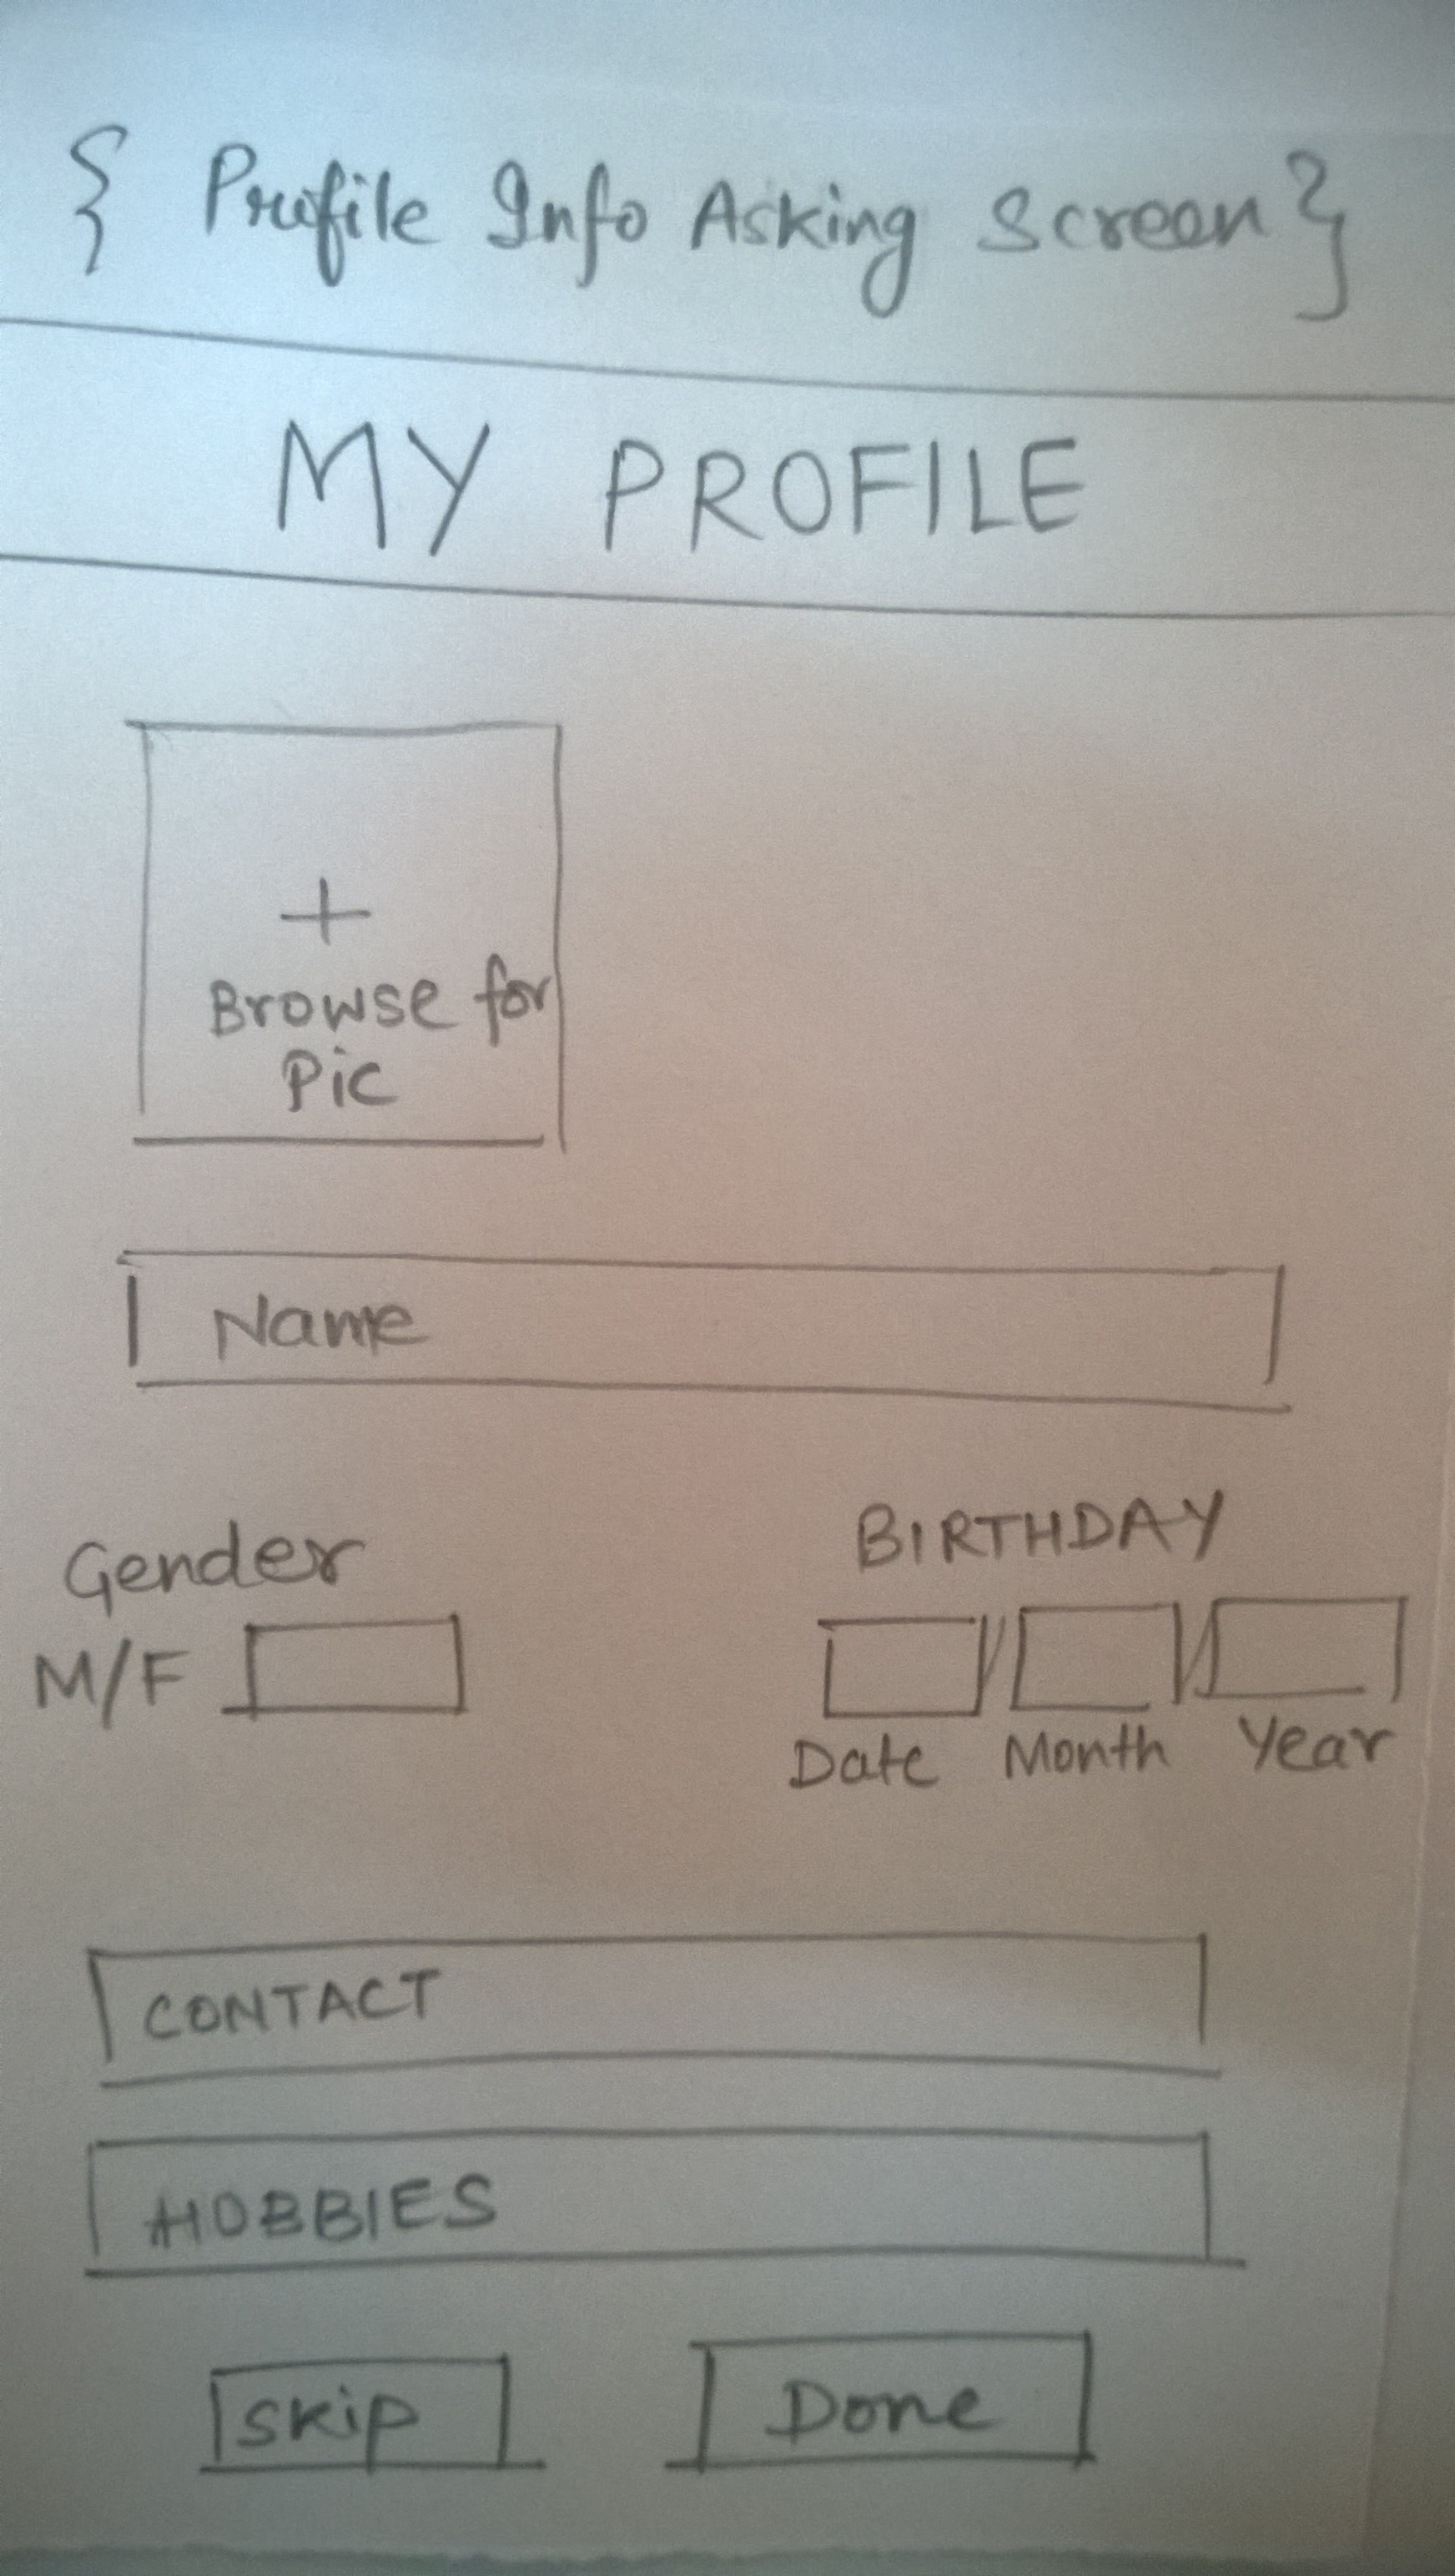 { Profile Info Asking Screen }
MY PROFILE
+
Browse for
Pic
Name
Gender
M/F
BIRTHDAY
/ /
Date Month Year
CONTACT
HOBBIES
Skip Done